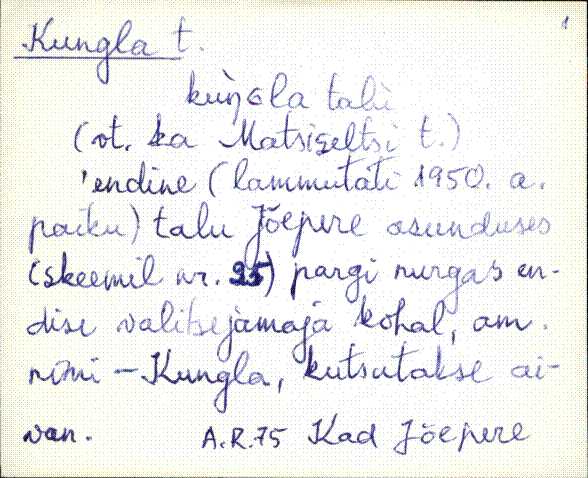 1
Kungla t.
kuŋ̀ɢla talù
(vt. ka Matsiseltsi t.)
'endine (lammutati 1950. a.
paiku) talu Jõepere asunduses
(skeemil nr. 35) pargi nurgas en-
dise valitsejamaja kohal, am.
nimi – Kungla, kutsutakse ai-
van.
A.R.75 Kad Jõepere